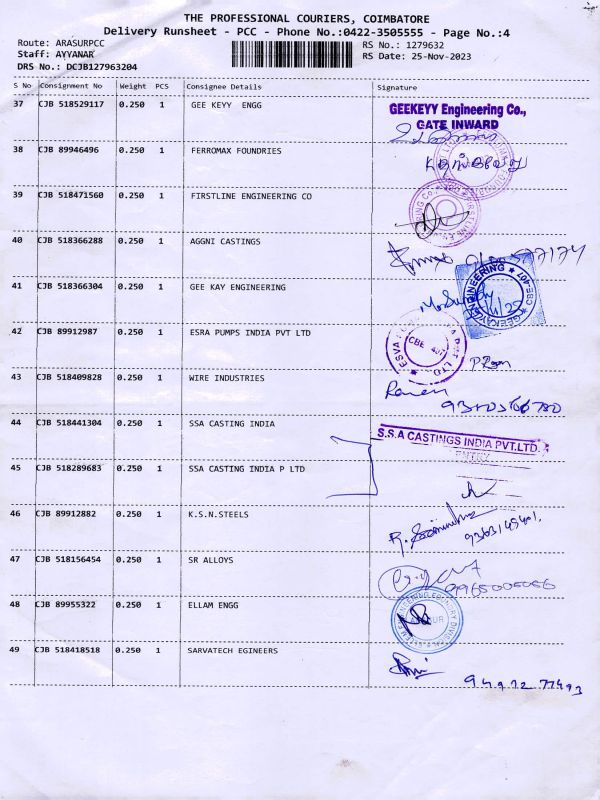 THE PROFESSIONAL COURIERS, COIMBATORE
Delivery Runsheet - PCC - Phone No.:0422-3505555 - Page No.:4
Route: ARASURPCC RS No.: 1279632
Staff: AYYANAR RS Date: 25-Nov-2023
DRS No.: DCJB127963204
S No Consignment No Weight PCS Consignee Details Signature
37 CJB 518529117 0.250 1 GEE KEYY ENGG
GEEKEYY Engineering Co.,
GATE INWARD
38 CJB 89946496 0.250 1 FERROMAX FOUNDRIES
39 CJB 518471560 0.250 1 FIRSTLINE ENGINEERING CO
40 CJB 518366288 0.250 1 AGGNI CASTINGS
41 CJB 518366304 0.250 1 GEE KAY ENGINEERING
42 CJB 89912987 0.250 1 ESRA PUMPS INDIA PVT LTD
CBE 407
43 CJB 518409828 0.250 1 WIRE INDUSTRIES
44 CJB 518441304 0.250 1 SSA CASTING INDIA
S.S.A CASTINGS INDIA PVT.LTD.
ENTRY
45 CJB 518289683 0.250 1 SSA CASTING INDIA P LTD
46 CJB 89912882 0.250 1 K.S.N.STEELS
47 CJB 518156454 0.250 1 SR ALLOYS
9965005056
48 CJB 89955322 0.250 1 ELLAM ENGG
49 CJB 518418518 0.250 1 SARVATECH EGINEERS